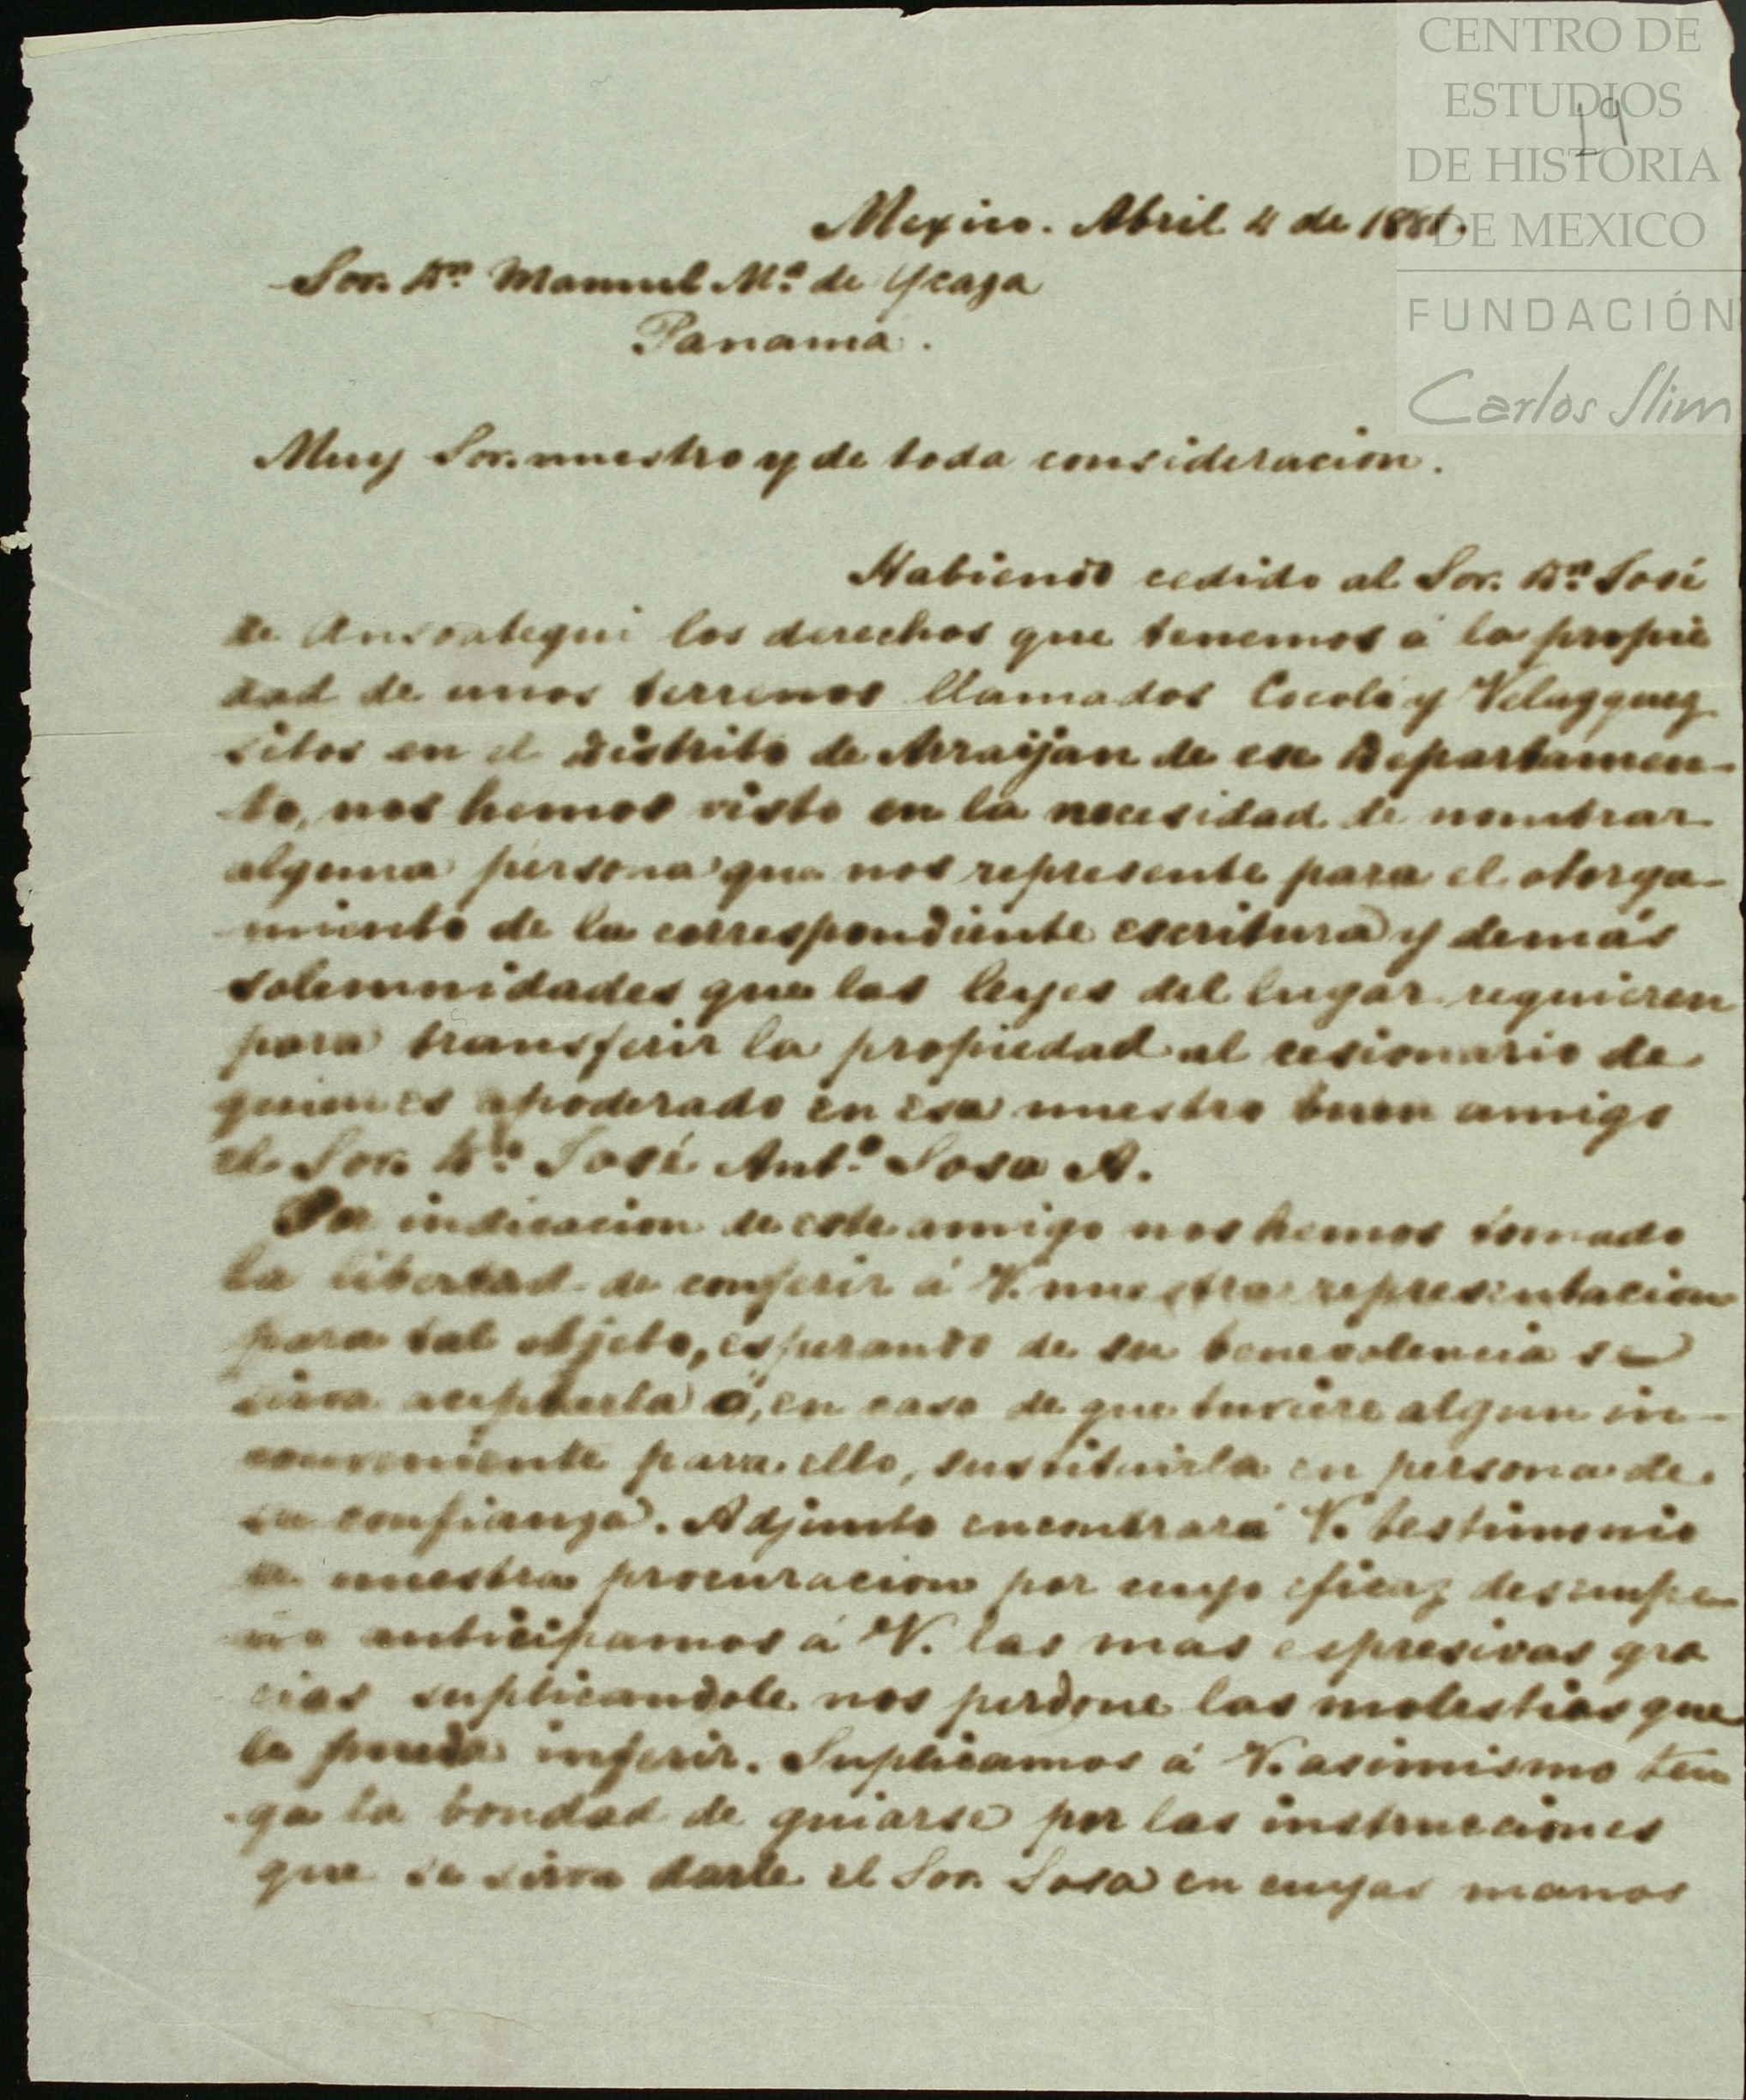 CENTRO DE
ESTUDIOS
DE HISTORIA
DE MEXICO
FUNDACIÓN
Carlos Slim
19
Mexico. Abril 4 de 1881.
Sor. Dn. Manuel Ma. de Ycaza
Panamá.
Muy Sor. nuestro y de toda consideracion.
Habiendo cedido al Sor. Dn. José
de Ansoategui los derechos que tenemos á la propie
dad de unos terrenos llamados Cocolí y Velazquez
sitos en el Distrito de Arraijan de ese Departamen-
to, nos hemos visto en la necesidad de nombrar
alguna persona que nos represente para el otorga-
miento de la correspondiente escritura y demás
solemnidades que las leyes del lugar requieren
para transferir la propiedad al cesionario de
quien es apoderado en esa nuestro buen amigo
el Sor. Dn. José Anto. Sosa A.
Por indicacion de este amigo nos hemos tomado
la libertad de conferir á V. nuestra representacion
para tal objeto, esperando de su benevolencia se
sirva aceptarla ó, en caso de que tuviere algun in-
conveniente para ello, sustituirla en persona de
su confianza. Adjunto encontrará V. testimonio
de nuestra procuracion por cuyo eficaz desempe-
ño anticipamos á V. las mas espresivas gra
cias suplicandole nos perdone las molestias que
le pueda inferir. Suplicamos á V. asimismo ten
ga la bondad de guiarse por las instrucciones
que se sirva darle el Sor. Sosa en cuyas manos